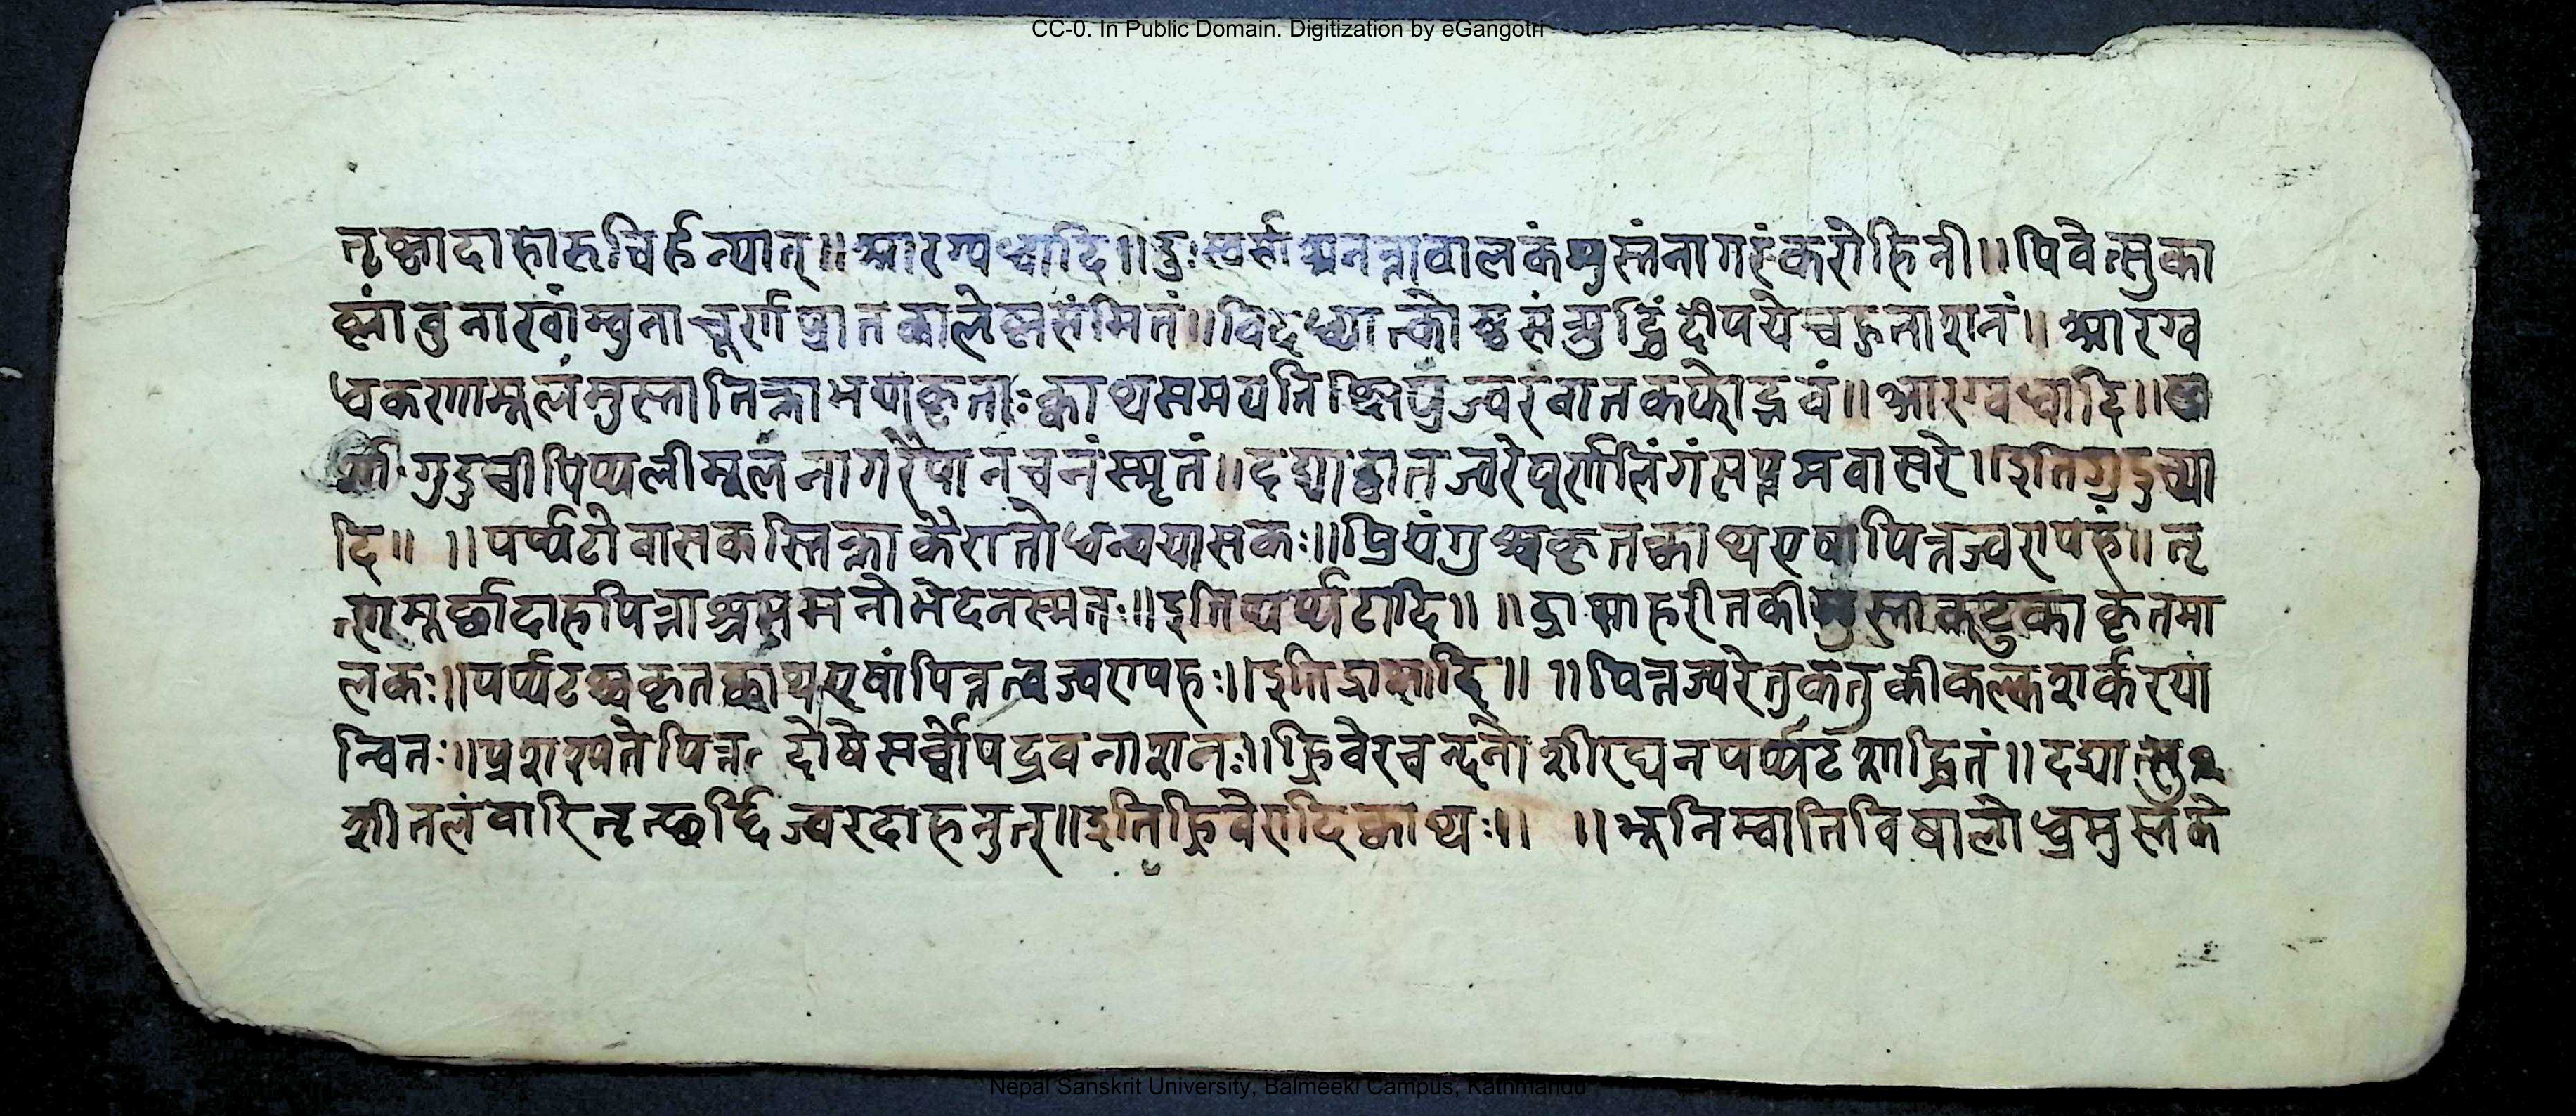 CC-0. In Public Domain. Digitization by eGangotri
तृष्णादाहारूचिर्हन्यात्॥आरग्वधादि॥दुःस्पर्सा नन्तावालकंमुस्तंनागरंकरोहिनी॥पिवेत्सुका
म्वुनाचूर्ण ॥विदध्यात्को दीपयेच्च नाशनं॥आरग्व
धकरणामूलंमुस्तातिक्ताभयाकृताःक्वाथसमयति ज्वरंवातकफोद्भवं॥आरग्वधादि॥
गुडुचीपिप्पलीमूलंनागरैपानचनंस्मृतं॥दद्याद्वातज्वरेपूर्णलिंगंसप्तमवासरे॥इतिगुडुच्या
दि॥ ॥पर्प्पटोवासकस्तिक्ताकैरातोधन्वयासकः॥प्रियंगुश्चकृतक्वाथएषापित्तज्वरापहं॥तृ
मूर्छादाहपित्ता नोभेदनस्मृतः॥इति पर्प्पटादि॥ ॥द्राक्षाहरीतकीमुस्ताकटुकाकृतमा
लकः॥पर्प्पटश्चकृतक्वाथएषांपित्त ज्वरापहः॥इतिद्राक्षादि॥ ॥पित्तज्वरेतु कल्कशर्करया
न्वितः॥ पित्त दोषेसर्व्वोपद्रवनाशनः॥ह्रिवेरचन्दनोशीरघनपर्प्पट ॥दद्यात्सु
शीतलंवारितृन्छर्द्दिज्वरदाहनुत्॥इतिह्रिवेरादिक्वाथः॥ ॥भूनिम्वातिविषालोध्रमुस्तके
Nepal Sanskrit University, Balmeeki Campus, Kathmandu